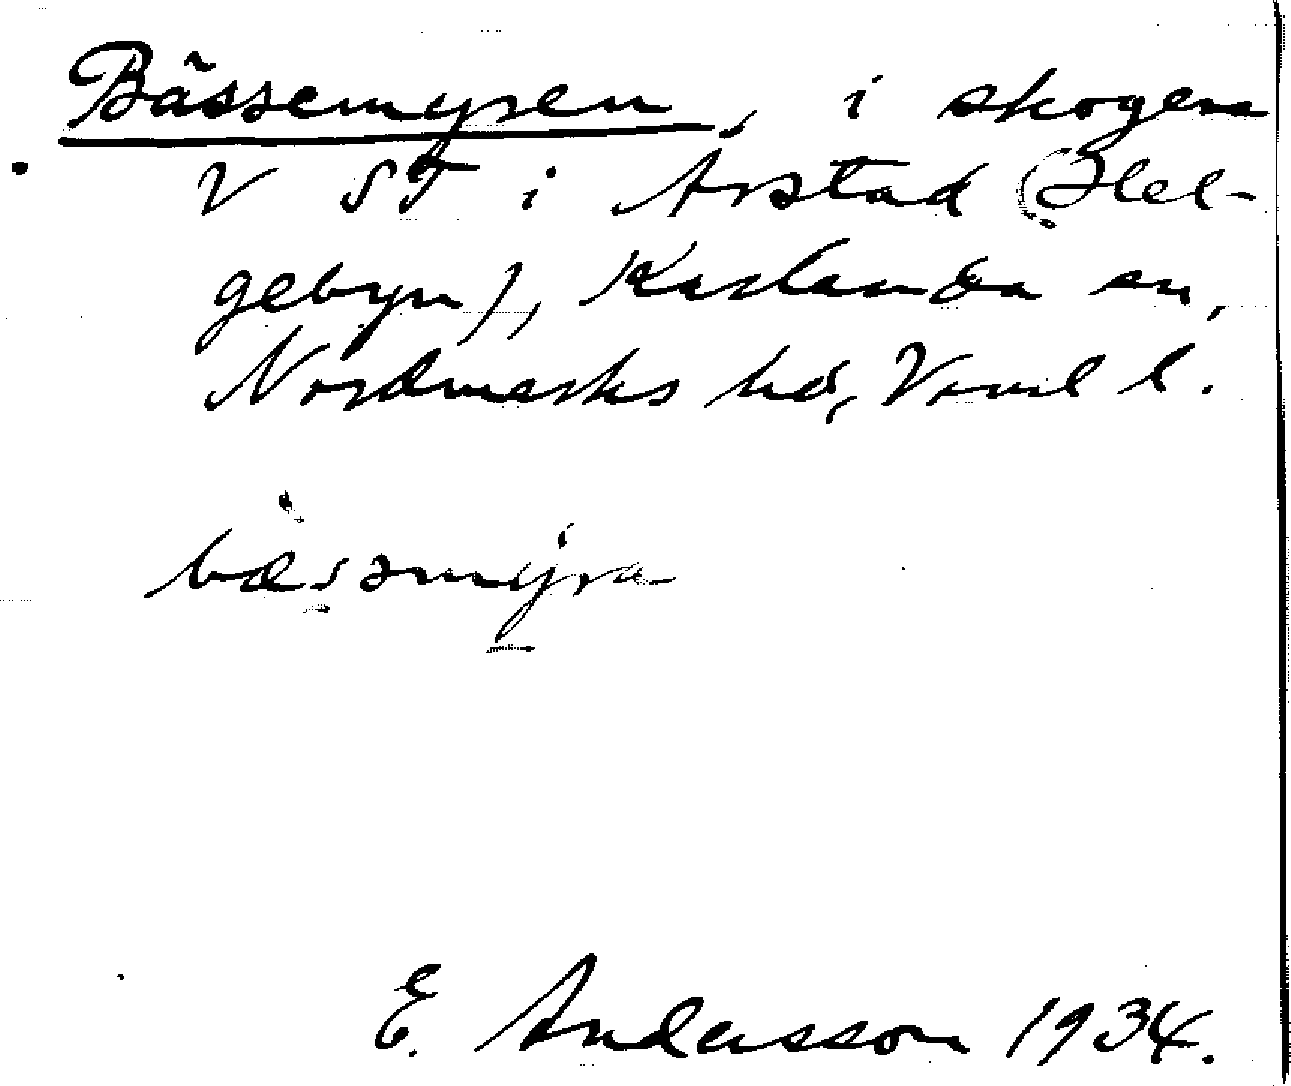 Bässemyren, i skogen
V ST i Årstad (Hel-
gebyn), Karlanda sn,
Nordmarks hd, Värml l.
bæssmyra
E. Andersson 1934.